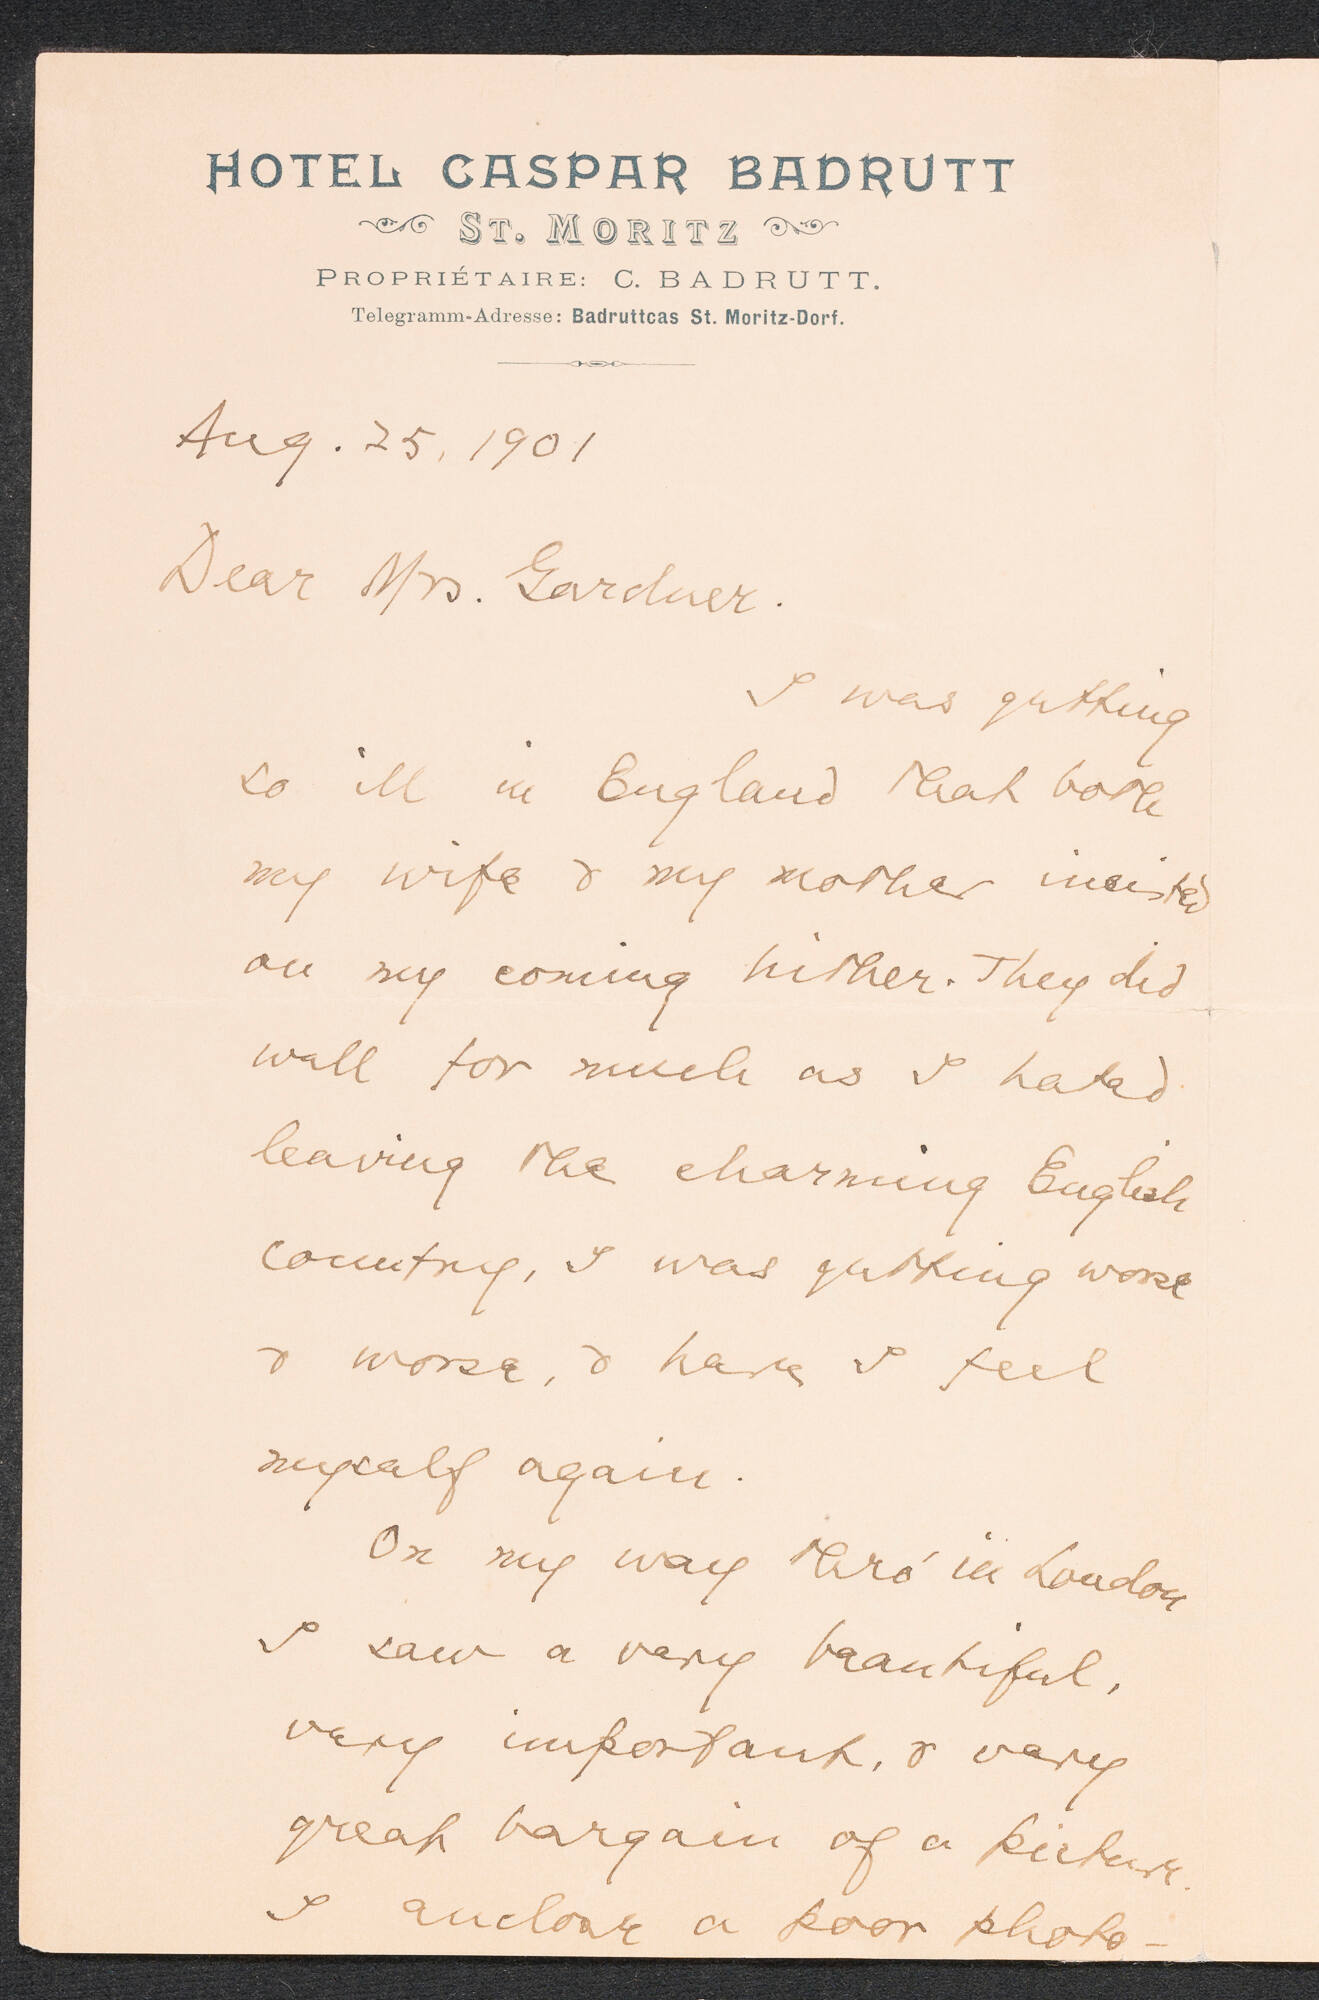 HOTEL CASPAR BADRUTT
ST. MORITZ
PROPRIÉTAIRE: C. BADRUTT.
Telegramm-Adresse: Badruttcas St. Moritz-Dorf.
Aug. 25, 1901
Dear Mrs. Gardner.
I was getting
so ill in England that both
my wife & my mother insisted
on my coming hither. They did
well for much as I hated
leaving the charming English
country, I was getting worse
& worse, & here I feel
myself again.
On my way thro' in London
I saw a very beautiful,
very important, & very
great bargain of a picture.
I enclose a poor photo-